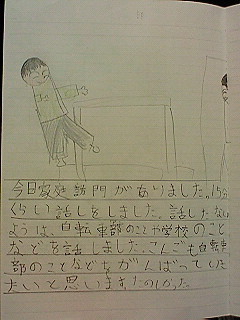 今日家庭訪門がありました。15分
くらい話しをしました。話したない
ようは、自転車部のことや学校のこと
などを話しました。こんごも自転車
部のことなどをがんばっていき
たいと思いますたのしかった。